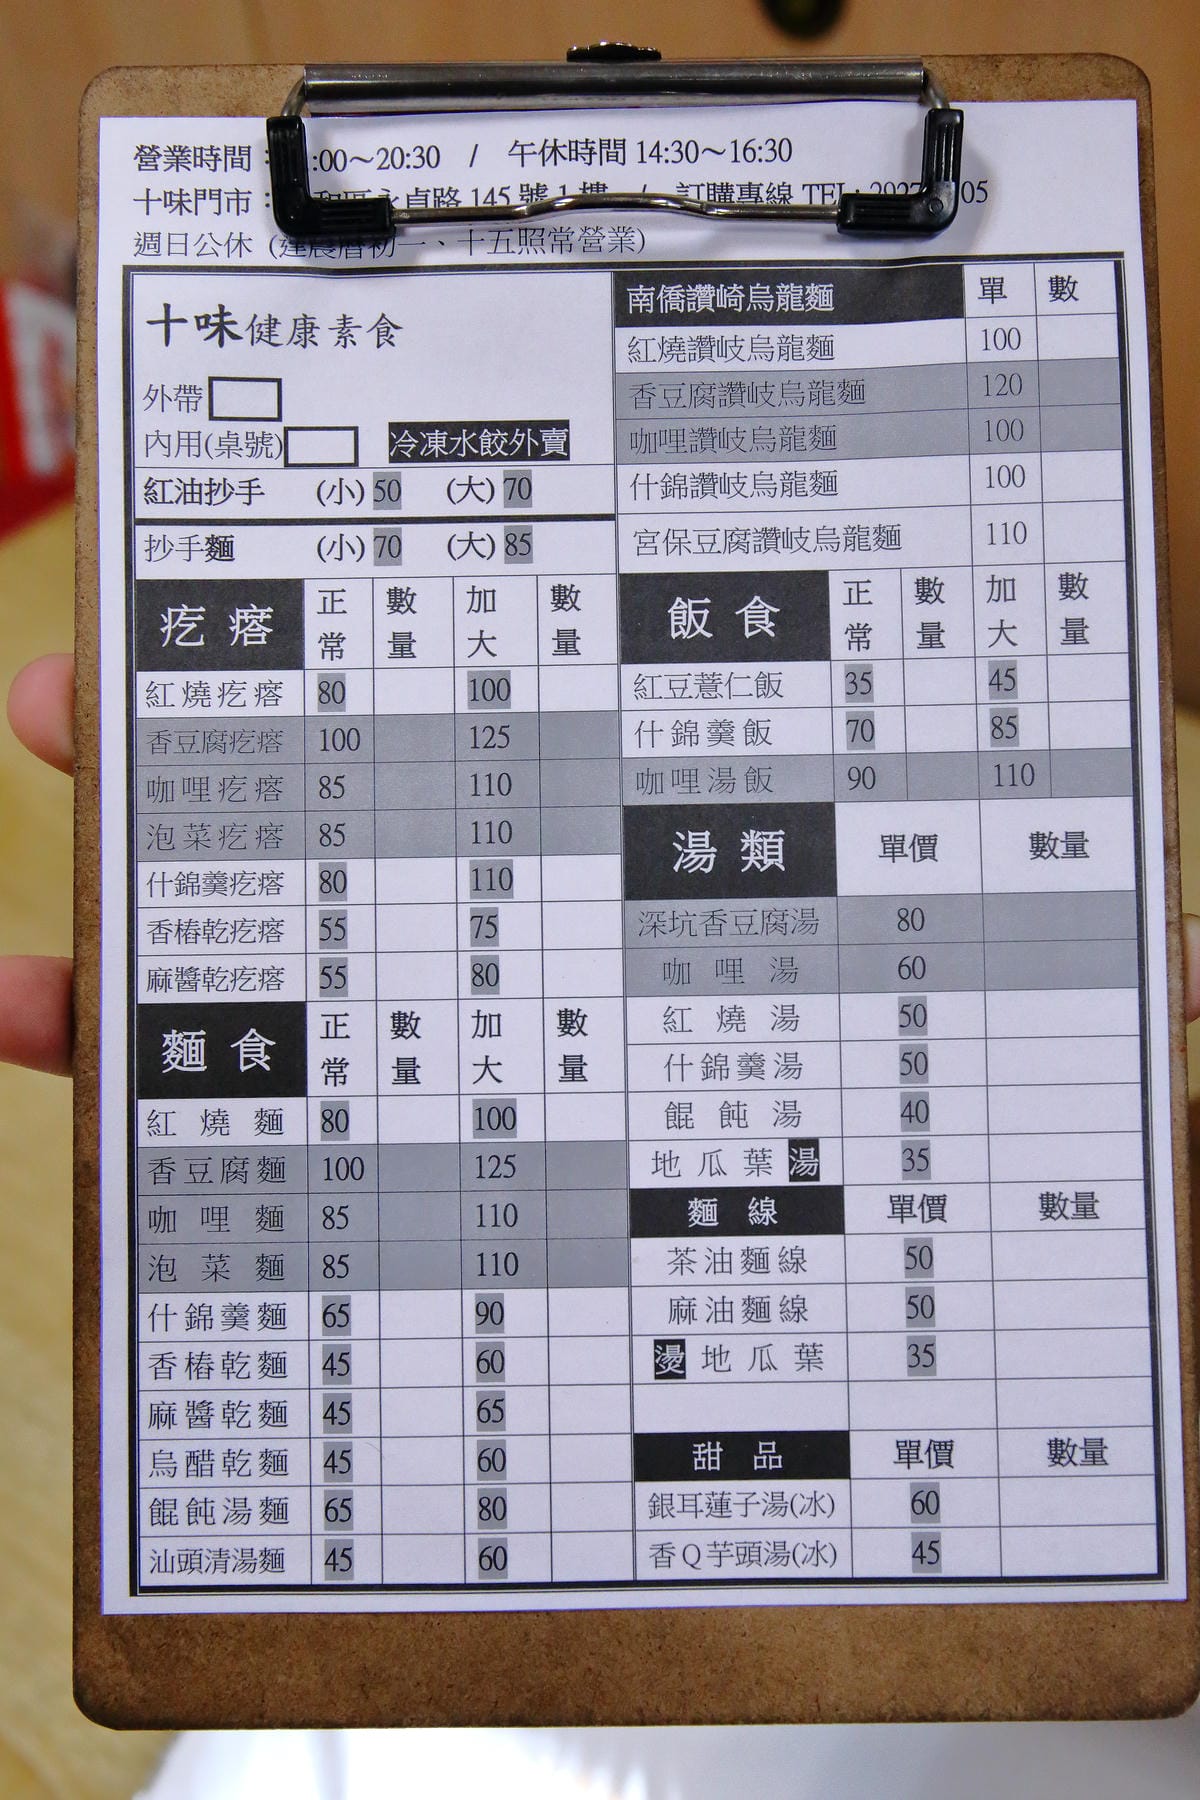 營業時間：:00～20:30 / 午休時間 14:30～16:30
十味門市：永貞路 145 號 1 樓 / 訂購專線 TEL: 05
週日公休 (逢農曆初一、十五照常營業)
十味健康素食
外帶
內用(桌號) 冷凍水餃外賣
紅油抄手 (小) 50 (大) 70
抄手麵 (小) 70 (大) 85
疙瘩 正常 數量 加大 數量
紅燒疙瘩 80 100
香豆腐疙瘩 100 125
咖哩疙瘩 85 110
泡菜疙瘩 85 110
什錦羹疙瘩 80 110
香樁乾疙瘩 55 75
麻醬乾疙瘩 55 80
麵食 正常 數量 加大 數量
紅燒麵 80 100
香豆腐麵 100 125
咖哩麵 85 110
泡菜麵 85 110
什錦羹麵 65 90
香樁乾麵 45 60
麻醬乾麵 45 65
烏醋乾麵 45 60
餛飩湯麵 65 80
汕頭清湯麵 45 60
南僑讚崎烏龍麵 單 數
紅燒讚岐烏龍麵 100
香豆腐讚岐烏龍麵 120
咖哩讚岐烏龍麵 100
什錦讚岐烏龍麵 100
宮保豆腐讚岐烏龍麵 110
飯食 正常 數量 加大 數量
紅豆薏仁飯 35 45
什錦羹飯 70 85
咖哩湯飯 90 110
湯類 單價 數量
深坑香豆腐湯 80
咖哩湯 60
紅燒湯 50
什錦羹湯 50
餛飩湯 40
地瓜葉湯 35
麵線 單價 數量
茶油麵線 50
麻油麵線 50
燙地瓜葉 35
甜品 單價 數量
銀耳蓮子湯(冰) 60
香Q芋頭湯(冰) 45